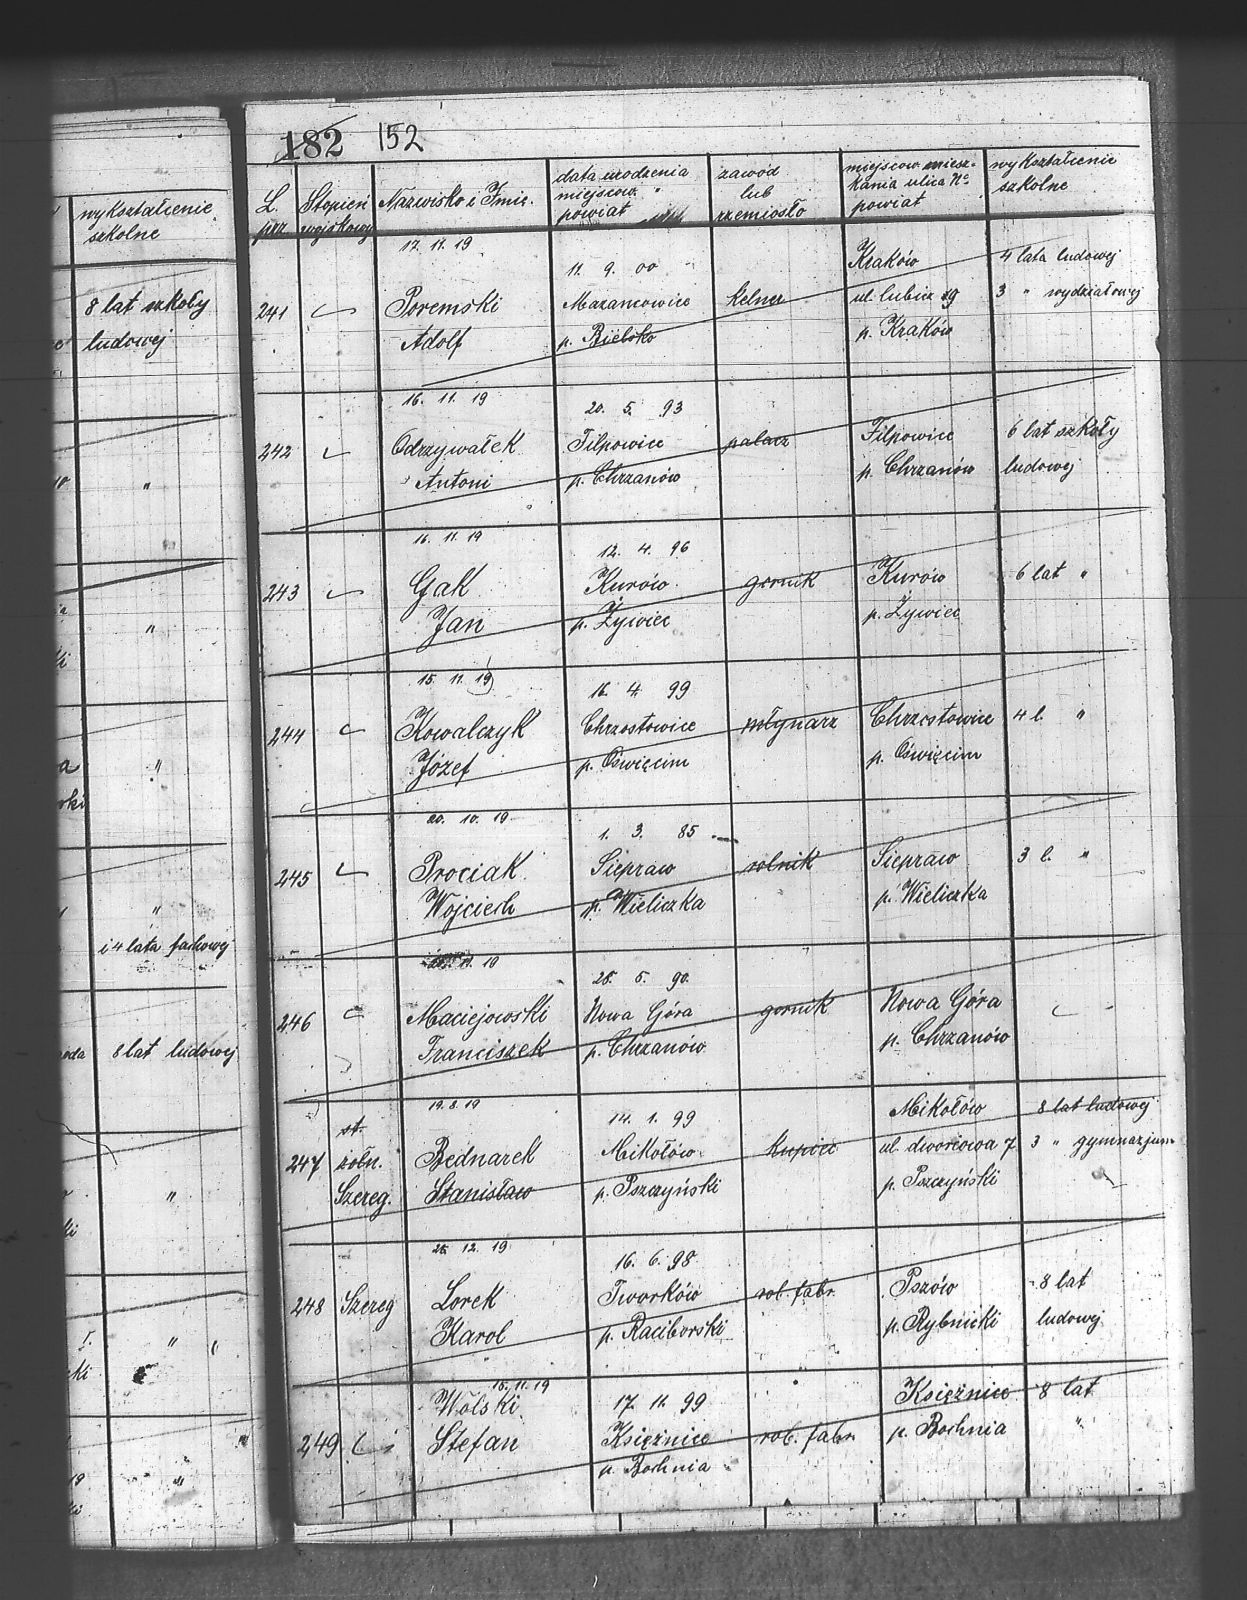 182 152
wykształcenie
szkolne
8 lat szkoły
ludowej
"
"
"
"
i 4 lata fachowej
8 lat ludowej
"
"
"
L. prz.
Stopień wojskowy
Nazwisko i Imię.
data urodzenia miejscow. powiat
zawód lub rzemiosło
miejscow. miesz-kania ulica No powiat
wykształcenie szkolne
17. 11. 19
11. 9. 00 Kraków 4 lata ludowej
241 Poremski Mazancowice kelner ul. lubicz 29 3 " wydziałowej
Adolf p. Bielsko p. Kraków
16. 11. 19 20. 5. 93
242 Odrzywałek Filpowice palacz Filpowice 6 lat szkoły
Antoni p. Chrzanów p. Chrzanów ludowej
16. 11. 19 12. 4. 96
243 Gak Kurów gornik Kurów 6 lat "
Jan p. Żywiec p. Żywiec
15. 11. 19 16. 4. 99
244 Kowalczyk Chrzostowice młynarz Chrzostowice 4 l. "
Józef p. Oświęcim p. Oświęcim
20. 10. 19 1. 3. 85
245 Prociak Siepraw rolnik Siepraw 3 l. "
Wojciech p. Wieliczka p. Wieliczka
11. 19 5. 90.
246 Maciejowski Nowa Góra gornik Nowa Góra
Franciszek p. Chrzanów p. Chrzanów
19. 8. 19 14. 1. 99 Mikołów 8 lat ludowej
247 st. żołn. Bednarek Mikołów kupiec ul. dworcowa 7 3 " gymnazjum
Szereg. Stanisław p. Pszczyński p. Pszczyński
12. 19 16. 6. 98
248 Szereg Lorek Tworków rob. fabr. Pszów 8 lat
Karol p. Raciborski p. Rybnicki ludowej
11. 19
Wolski 17. 11. 99 Księżnice 8 lat
249 Stefan Księżnice rob. fabr. p. Bochnia "
p. Bochnia